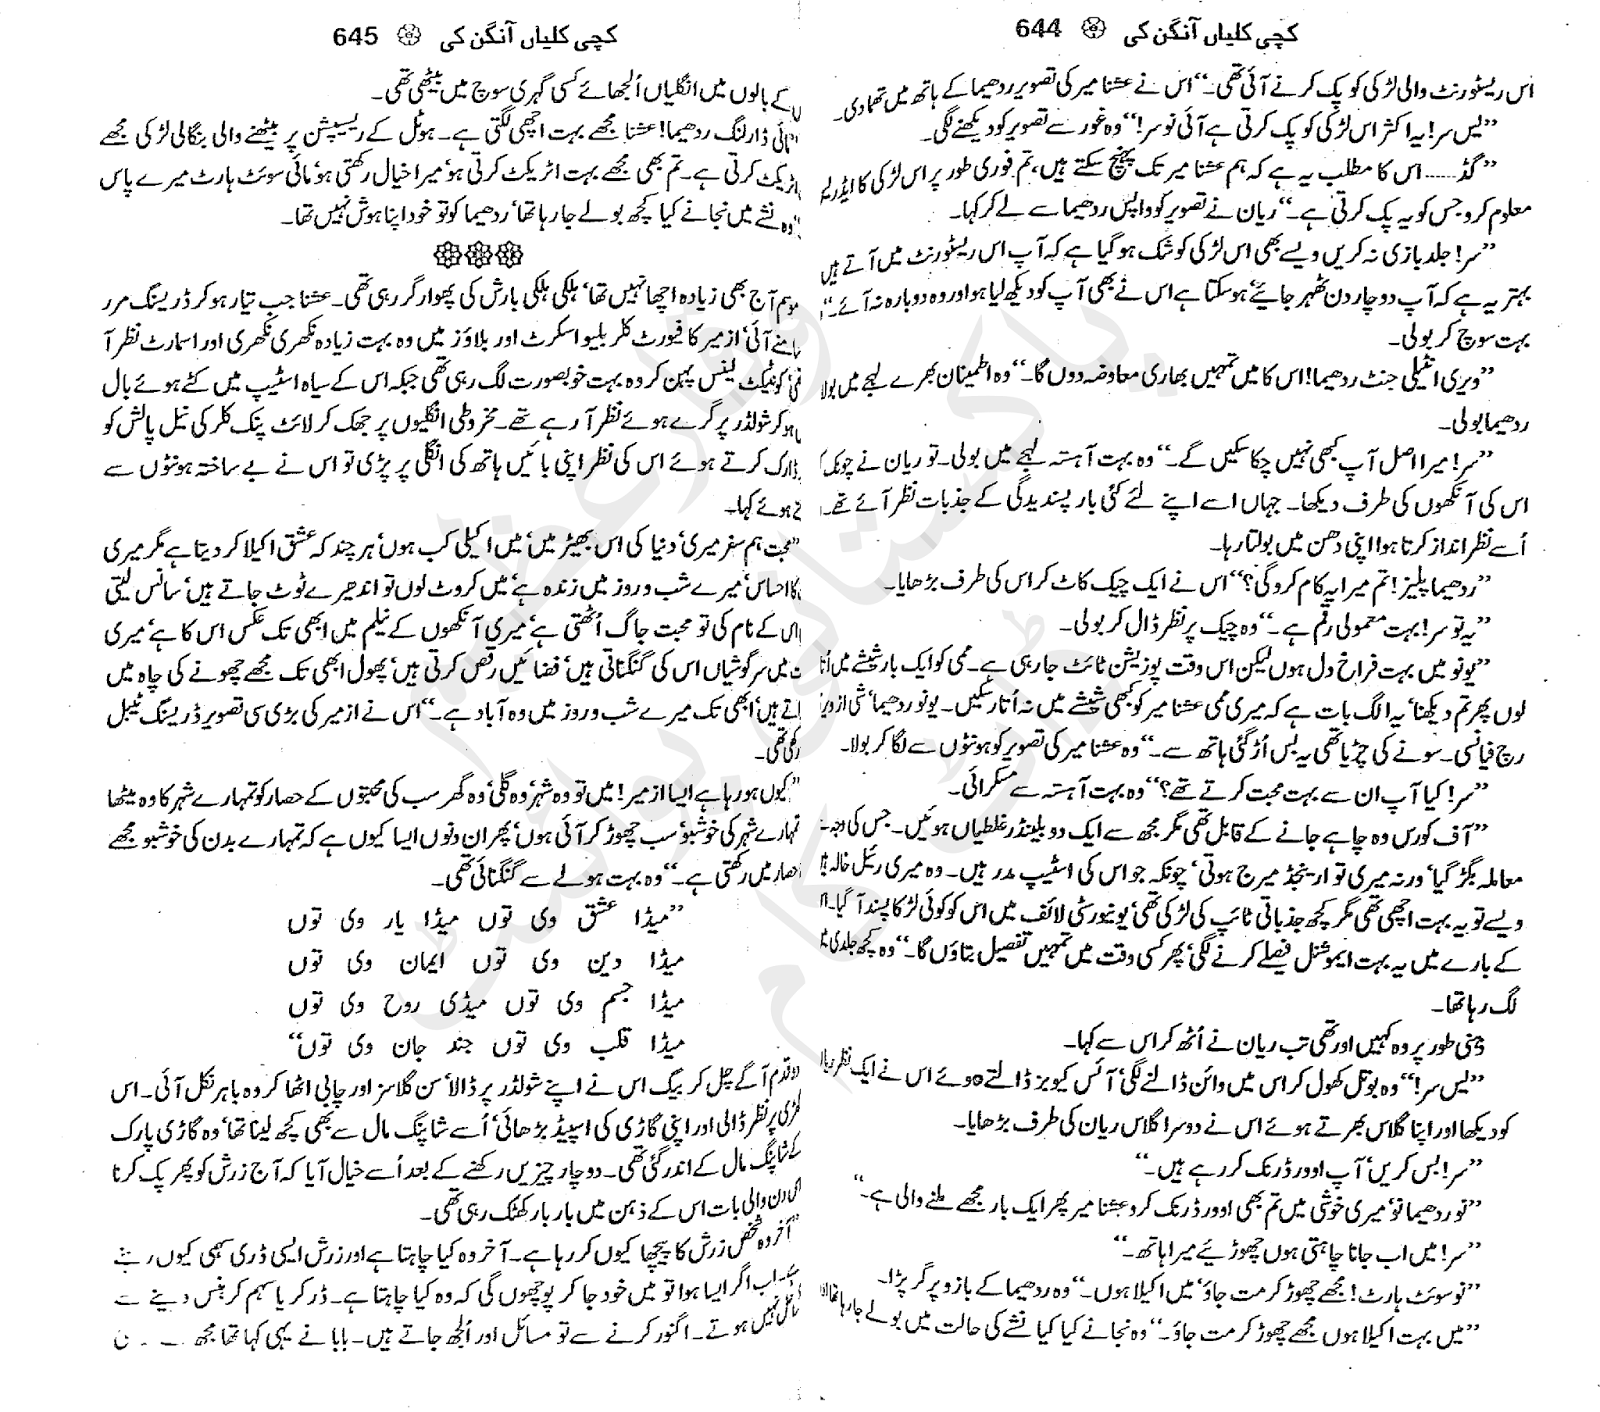 کچی کلیاں آنگن کی ۞ 644
اس ریسٹورنٹ والی لڑکی کو پک کرنے آئی تھی۔‘‘ اس نے عشنا میر کی تصویر ردھیما کے ہاتھ میں تھما دی۔
’’یس سر! یہ اکثر اس لڑکی کو پک کرتی ہے آئی نو سر!‘‘ وہ غور سے تصویر کو دیکھنے لگی۔
’’گڈ...... اس کا مطلب یہ ہے کہ ہم عشنا میر تک پہنچ سکتے ہیں، تم فوری طور پر اس لڑکی کا ایڈریس
معلوم کرو جس کو یہ پک کرتی ہے۔‘‘ ریان نے تصویر کو واپس ردھیما سے لے کر کہا۔
’’سر! جلد بازی نہ کریں ویسے بھی اس لڑکی کو شک ہو گیا ہے کہ آپ اس ریسٹورنٹ میں آتے ہیں
بہتر یہ ہے کہ آپ دو چار دن ٹھہر جایئے‘ ہو سکتا ہے اس نے بھی آپ کو دیکھ لیا ہو اور وہ دوبارہ نہ آئے۔‘‘
بہت سوچ کر بولی۔
’’ویری انٹیلی جنٹ ردھیما! اس کا میں تمہیں بھاری معاوضہ دوں گا۔‘‘ وہ اطمینان بھرے لہجے میں بولا
ردھیما بولی۔
’’سر! میرا اصل آپ کبھی نہیں چکا سکیں گے۔‘‘ وہ بہت آہستہ لہجے میں بولی۔ تو ریان نے چونک
اس کی آنکھوں کی طرف دیکھا۔ جہاں اسے اپنے لئے کئی بار پسندیدگی کے جذبات نظر آئے تھے۔
اُسے نظر انداز کرتا ہوا اپنی دھن میں بولتا رہا۔
’’ردھیما پلیز! تم میرا یہ کام کرو گی؟‘‘ اس نے ایک چیک کاٹ کر اس کی طرف بڑھایا۔
’’یہ تو سر! بہت معمولی رقم ہے۔‘‘ وہ چیک پر نظر ڈال کر بولی۔
’’یو نو میں بہت فراخ دل ہوں لیکن اس وقت پوزیشن ٹائٹ جا رہی ہے۔ ممی کو ایک بار شیشے میں اُتا
لوں پھر تم دیکھنا‘ یہ الگ بات ہے کہ میری ممی عشنا میر کو کبھی شیشے میں نہ اُتار سکیں۔ یو نو ردھیما‘ شی از ویر
رچ فیانسی۔ سونے کی چڑیا تھی یہ بس اُڑ گئی ہاتھ سے۔‘‘ وہ عشنا میر کی تصویر کو ہونٹوں سے لگا کر بولا۔
’’سر! کیا آپ ان سے بہت محبت کرتے تھے؟‘‘ وہ بہت آہستہ سے مسکرائی۔
’’آف کورس وہ چاہے جانے کے قابل تھی مگر مجھ سے ایک دو بلینڈر غلطیاں ہوئیں۔ جس کی وجہ
معاملہ بگڑ گیا‘ ورنہ میری تو ارینجڈ میرج ہوتی‘ چونکہ جو اس کی اسٹیپ مدر ہیں۔ وہ میری رئیل خالہ
ویسے تو یہ بہت اچھی تھی مگر کچھ جذباتی ٹائپ کی لڑکی تھی‘ یونیورسٹی لائف میں اس کو کوئی لڑکا پسند آ گیا۔
کے بارے میں یہ بہت ایموشنل فیصلے کرنے لگی‘ پھر کسی وقت میں تمہیں تفصیل بتاؤں گا۔‘‘ وہ کچھ جلدی
لگ رہا تھا۔
ذہنی طور پر وہ کہیں اور تھی تب ریان نے اُٹھ کر اس سے کہا۔
’’یس سر!‘‘ وہ بوتل کھول کر اس میں وائن ڈالنے لگی‘ آئس کیوبز ڈالتے ہوئے اس نے ایک نظر ریان
کو دیکھا اور اپنا گلاس بھرتے ہوئے اس نے دوسرا گلاس ریان کی طرف بڑھایا۔
’’سر! بس کریں‘ آپ اوور ڈرنک کر رہے ہیں۔‘‘
’’نو ردھیما نو‘ میری خوشی میں تم بھی اوور ڈرنک کرو عشنا میر پھر ایک بار مجھے ملنے والی ہے۔‘‘
’’سر! میں اب جانا چاہتی ہوں چھوڑیئے میرا ہاتھ۔‘‘
’’نو سوئٹ ہارٹ! مجھے چھوڑ کر مت جاؤ‘ میں اکیلا ہوں۔‘‘ وہ ردھیما کے بازو پر گر پڑا۔
’’میں بہت اکیلا ہوں مجھے چھوڑ کر مت جاؤ۔‘‘ وہ نجانے کیا کیا نشے کی حالت میں بولے جا رہا تھا
کچی کلیاں آنگن کی ۞ 645
کے بالوں میں انگلیاں اُلجھائے کسی گہری سوچ میں بیٹھی تھی۔
مائی ڈارلنگ ردھیما! عشنا مجھے بہت اچھی لگتی ہے۔ ہوٹل کے ریسیپشن پر بیٹھنے والی بنگالی لڑکی مجھے
اٹریکٹ کرتی ہے۔ تم بھی مجھے بہت اٹریکٹ کرتی ہو‘ میرا خیال رکھتی ہو‘ مائی سوئٹ ہارٹ میرے پاس
وہ نشے میں نجانے کیا کچھ بولے جا رہا تھا‘ ردھیما کو تو خود اپنا ہوش نہیں تھا۔
۞۞۞
موسم آج بھی زیادہ اچھا نہیں تھا‘ ہلکی ہلکی بارش کی پھوار گر رہی تھی۔ عشنا جب تیار ہو کر ڈریسنگ مرر
سامنے آئی‘ ازمیر کا فیورٹ کلر بلیو اسکرٹ اور بلاؤز میں وہ بہت زیادہ نکھری نکھری اور اسمارٹ نظر آ
کونٹیکٹ لینس پہن کر وہ بہت خوبصورت لگ رہی تھی جبکہ اس کے سیاہ اسٹیپ میں کٹے ہوئے بال
ہو کر شولڈر پر گرے ہوئے نظر آ رہے تھے۔ مخروطی انگلیوں پر جھک کر لائٹ پنک کلر کی نیل پالش کو
ڈارک کرتے ہوئے اس کی نظر اپنی بائیں ہاتھ کی انگلی پر پڑی تو اس نے بے ساختہ ہونٹوں سے
ہوئے کہا۔
’’محبت ہم سفر میری‘ دنیا کی اس بھیڑ میں‘ میں اکیلی کب ہوں‘ ہر چند کہ عشق اکیلا کر دیتا ہے مگر میری
کا احساس‘ میرے شب و روز میں زندہ ہے‘ میں کروٹ لوں تو اندھیرے ٹوٹ جاتے ہیں‘ سانس لیتی
اس کے نام کی تو محبت جاگ اُٹھتی ہے‘ میری آنکھوں کے نیلم میں ابھی تک عکس اس کا ہے‘ میری
میں سرگوشیاں اس کی گنگناتی ہیں‘ فضائیں رقص کرتی ہیں‘ پھول ابھی تک مجھے چھونے کی چاہ میں
ہیں‘ ابھی تک میرے شب و روز میں وہ آباد ہے۔‘‘ اس نے ازمیر کی بڑی سی تصویر ڈریسنگ ٹیبل
رکھی تھی۔
’’کیوں ہو رہا ہے ایسا ازمیر! میں تو وہ شہر‘ وہ گلی‘ وہ گھر سب کی محبتوں کے حصار کو تمہارے شہر کا وہ میٹھا
تمہارے شہر کی خوشبو‘ سب چھوڑ کر آئی ہوں‘ پھر ان دنوں ایسا کیوں ہے کہ تمہارے بدن کی خوشبو مجھے
حصار میں رکھتی ہے۔‘‘ وہ بہت ہولے سے گنگنائی تھی۔
’’میڈا عشق وی توں میڈا یار وی توں
میڈا دین وی توں ایمان وی توں
میڈا جسم وی توں میڈی روح وی توں
میڈا قلب وی توں جند جان وی توں‘‘
قدم آگے چل کر بیگ اس نے اپنے شولڈر پر ڈالا‘ سن گلاسز اور چابی اٹھا کر وہ باہر نکل آئی۔ اس
گھڑی پر نظر ڈالی اور اپنی گاڑی کی اسپیڈ بڑھائی‘ اُسے شاپنگ مال سے بھی کچھ لینا تھا‘ وہ گاڑی پارک
کے شاپنگ مال کے اندر گئی تھی۔ دو چار چیزیں رکھنے کے بعد اُسے خیال آیا کہ آج زرش کو پھر پک کرنا
اس دن والی بات اس کے ذہن میں بار بار کھٹک رہی تھی۔
’’آخر وہ شخص زرش کا پیچھا کیوں کر رہا ہے۔ آخر وہ کیا چاہتا ہے اور زرش ایسی ڈری کبھی کیوں رہنے
اب اگر ایسا ہوا تو میں خود جا کر پوچھوں گی کہ وہ کیا چاہتا ہے۔ ڈر کر یا سہم کر جینے سے
نہیں ہوتے۔ اگنور کرنے سے تو مسائل اور اُلجھ جاتے ہیں۔ بابا نے یہی کہا تھا مجھ